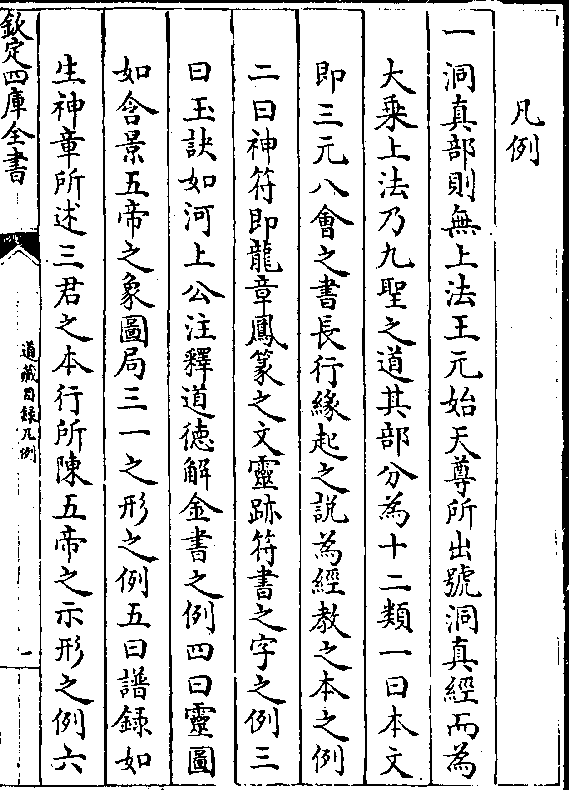 凡例
一洞真部則無上法王元始天尊所出號洞真經而為
大乘上法乃九聖之道其部分為十二類一曰本文
即三元八會之書長行緣起之說為經教之本之例
二曰神符即龍章鳳篆之文靈跡符書之字之例三
曰玉訣如河上公注釋道德解金書之例四曰靈圖
如含景五帝之象圖局三一之形之例五曰譜録如
生神章所述三君之本行所陳五帝之示形之例六
欽定四庫全書
道藏目録凡例
一